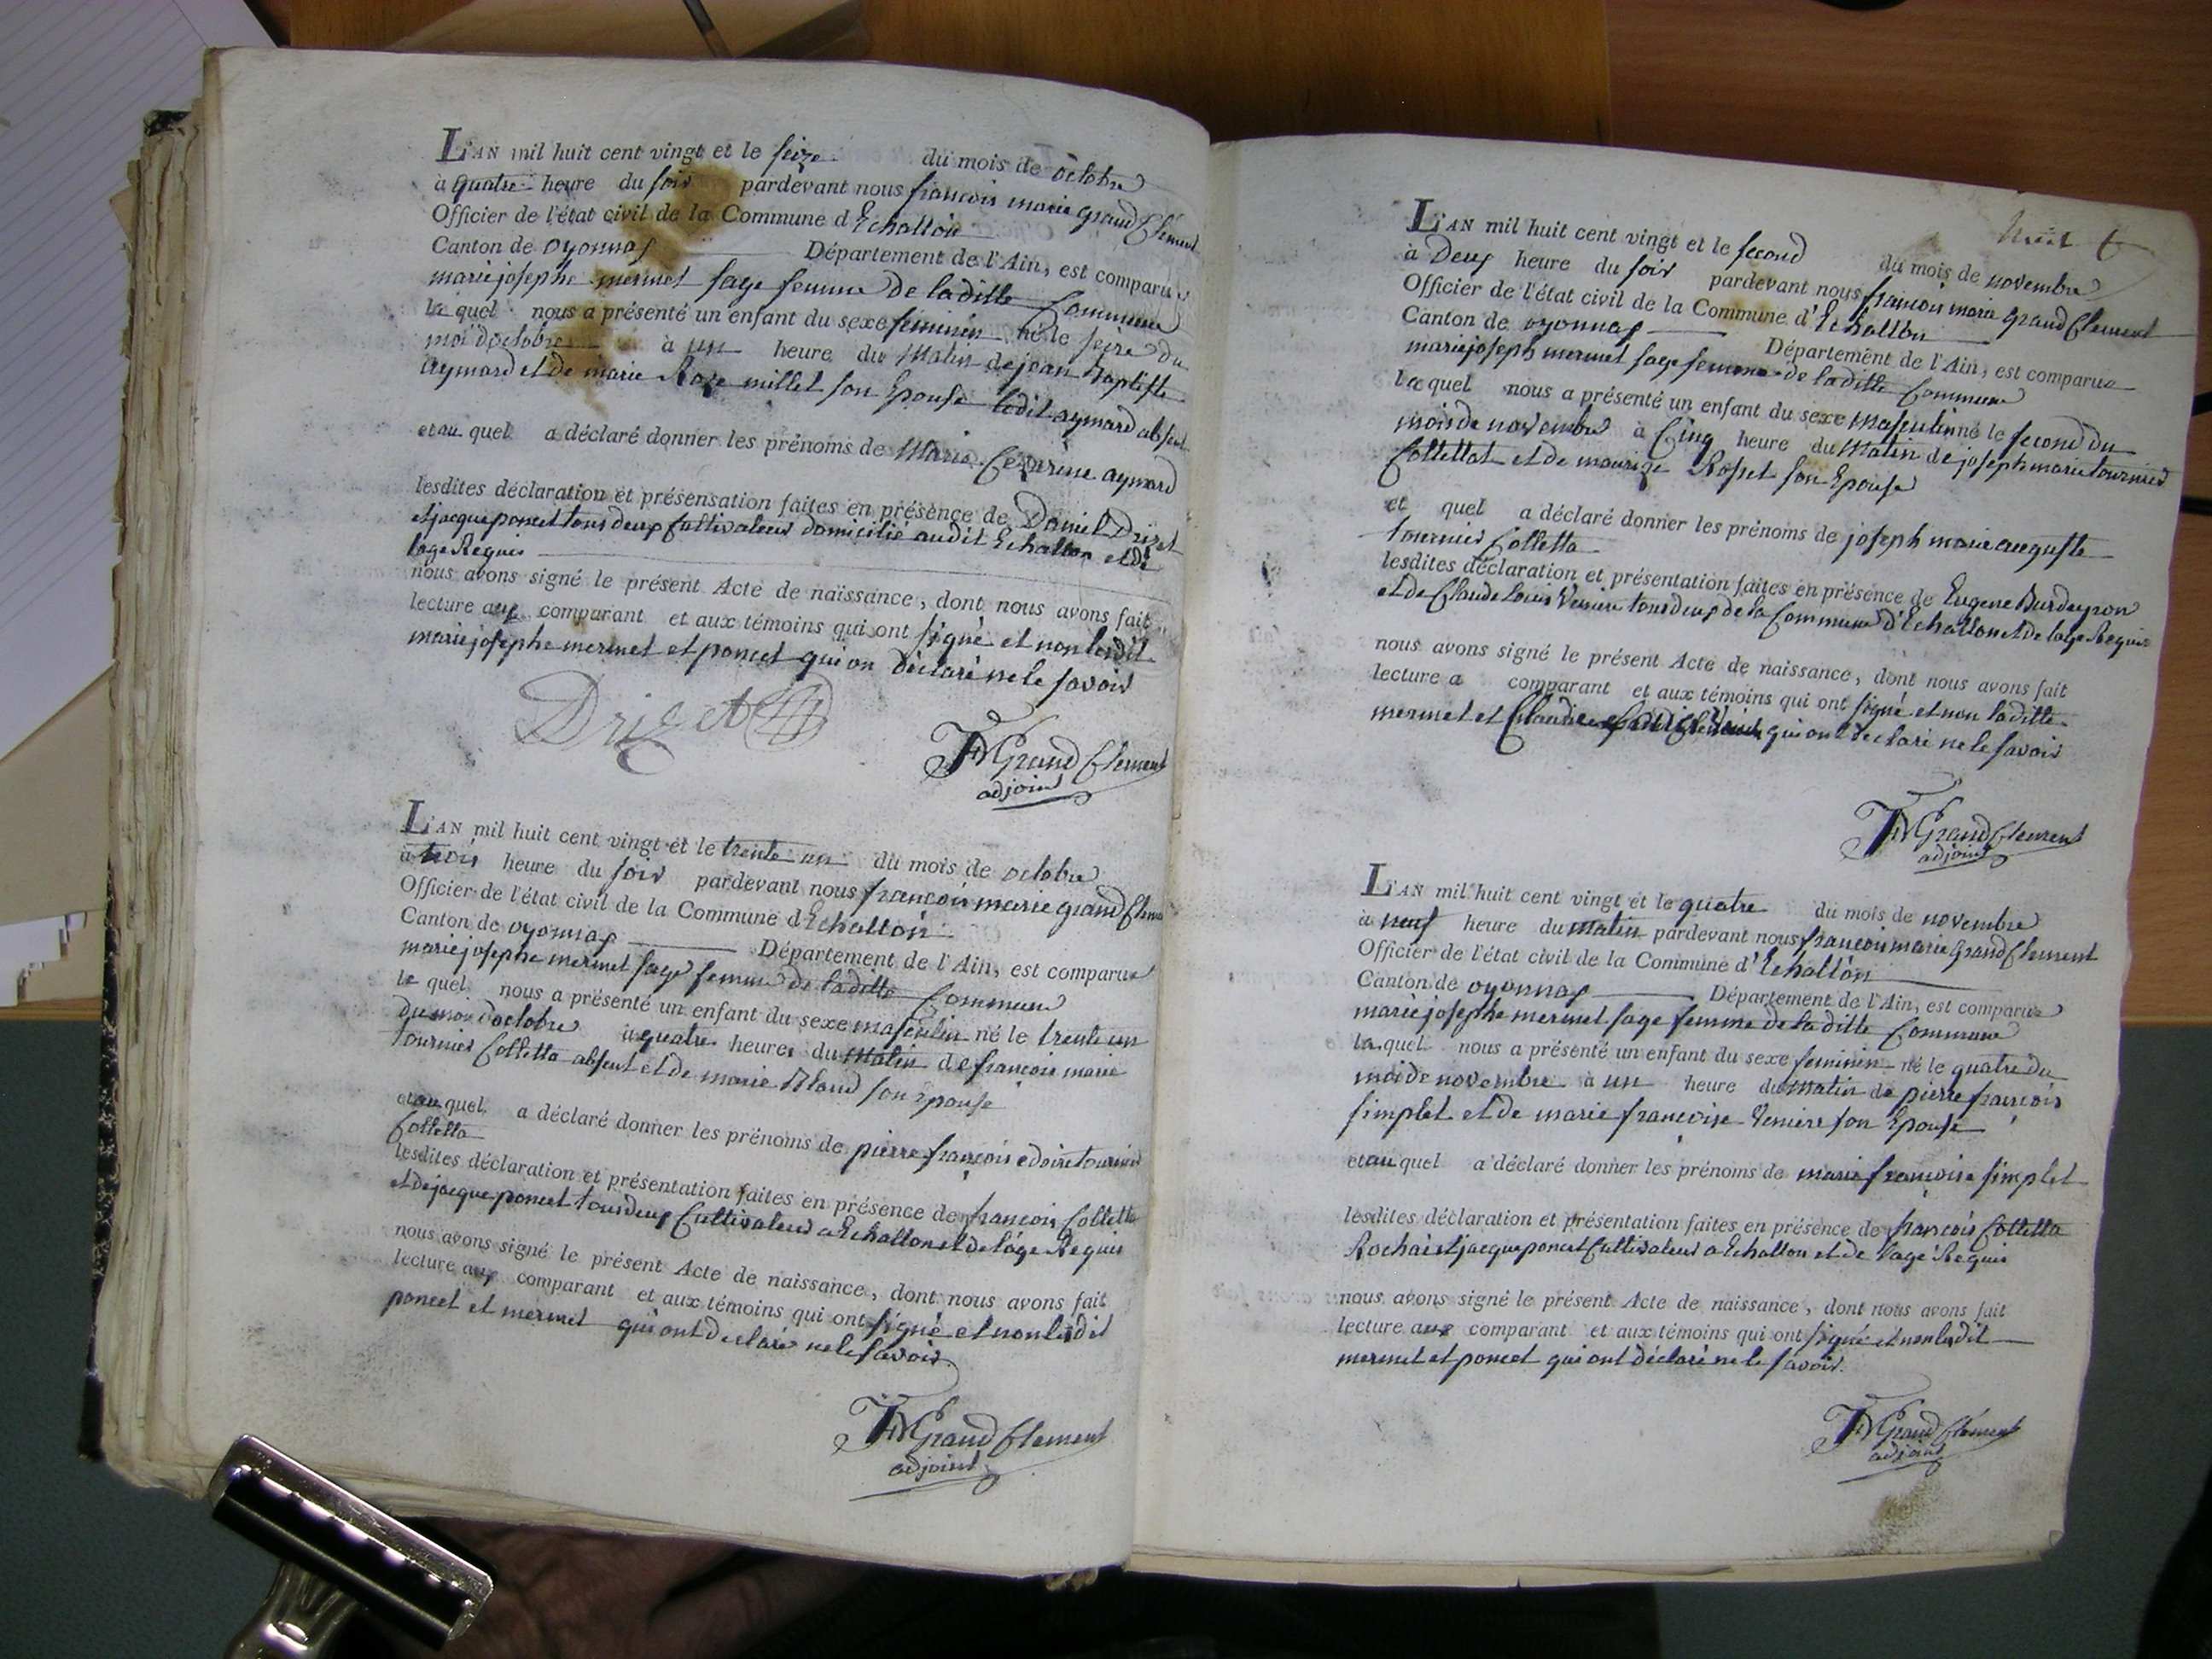 L'AN mil huit cent vingt et le seize du mois de octobre
à quatre heure du soir pardevant nous francois marie grand Clement
Officier de l'état civil de la Commune d'Echallon
Canton de oyonnax Département de l'Ain, est comparue
marie josephe mermet sage femme de laditte Commune
la quel nous a présenté un enfant du sexe feminin né le seize du
moi d'octobre à un heure du Matin de jean baptiste
aymard et de marie Roze millet son Epouse ledit aymard absent
et au quel a déclaré donner les prénoms de Marie Cezarine aymard
lesdites déclaration et présensation faites en présence de Daniel Drizet
et jacque poncet tous deux Cultivateur domicilié audit Echallon et de
lage Requis
nous avons signé le présent Acte de naissance, dont nous avons fait
lecture aux comparant et aux témoins qui ont signé et non lesdit
marie josephe mermet et poncet qui on déclaré ne le savoir
Drizet
FM Grand Clement
adjoint
L'AN mil huit cent vingt et le trente un du mois de octobre
à trois heure du soir pardevant nous francois marie grand Clement
Officier de l'état civil de la Commune d'Echallon
Canton de oyonnax Département de l'Ain, est comparue
marie josephe mermet sage femme de laditte Commune
le quel nous a présenté un enfant du sexe masculin né le trente un
du moi d'octobre à quatre heures du Matin de francois marie
tournier Colletta absent et de marie Bland son epouse
et au quel a déclaré donner les prénoms de pierre francois tournier
Colletta
lesdites déclaration et présentation faites en présence de francois Colletta
et de jacque poncet tous deux Cultivateur a Echallon et de l'age Requis
nous avons signé le présent Acte de naissance, dont nous avons fait
lecture aux comparant et aux témoins qui ont signé et non lesdit
poncet et mermet qui ont declaré ne le savoir
FM Grand Clement
adjoint
huit
L'AN mil huit cent vingt et le second du mois de novembre
à Deux heure du soir pardevant nous francois marie grand Clement
Officier de l'état civil de la Commune d'Echallon
Canton de oyonnax Département de l'Ain, est comparue
marie joseph mermet sage femme de laditte Commune
la quel nous a présenté un enfant du sexe Masculin né le second du
mois de novembre à Cinq heure du Matin de joseph marie tournier
Collettat et de maurize Rosset son Epouse
et quel a déclaré donner les prénoms de joseph marie auguste
tournier Colletta
lesdites déclaration et présentation faites en présence de Eugene Burdeyron
et de Claude Louis Veniere tous deux de la Commune d'Echallon et de lage Requis
nous avons signé le présent Acte de naissance, dont nous avons fait
lecture a comparant et aux témoins qui ont signé et non laditte
mermet et qui ont declaré ne le savoir
FM Grand Clement
adjoint
L'AN mil huit cent vingt et le quatre du mois de novembre
à neuf heure du matin pardevant nous francois marie Grand Clement
Officier de l'état civil de la Commune d'Echallon
Canton de oyonnax Département de l'Ain, est comparue
marie josephe mermet sage femme de laditte Commune
la quel nous a présenté un enfant du sexe feminin né le quatre du
moi de novembre à un heure du Matin de pierre francois
simplet et de marie francoise Veniere son Epouse
et au quel a déclaré donner les prénoms de marie francoise simplet
lesdites déclaration et présentation faites en présence de francois Colletta
Rochai et jacque poncet Cultivateur a Echallon et de l'age Requis
nous avons signé le présent Acte de naissance, dont nous avons fait
lecture aux comparant et aux témoins qui ont signé et non lesdit
mermet et poncet qui ont déclaré ne le savoir.
FM Grand Clement
adjoint